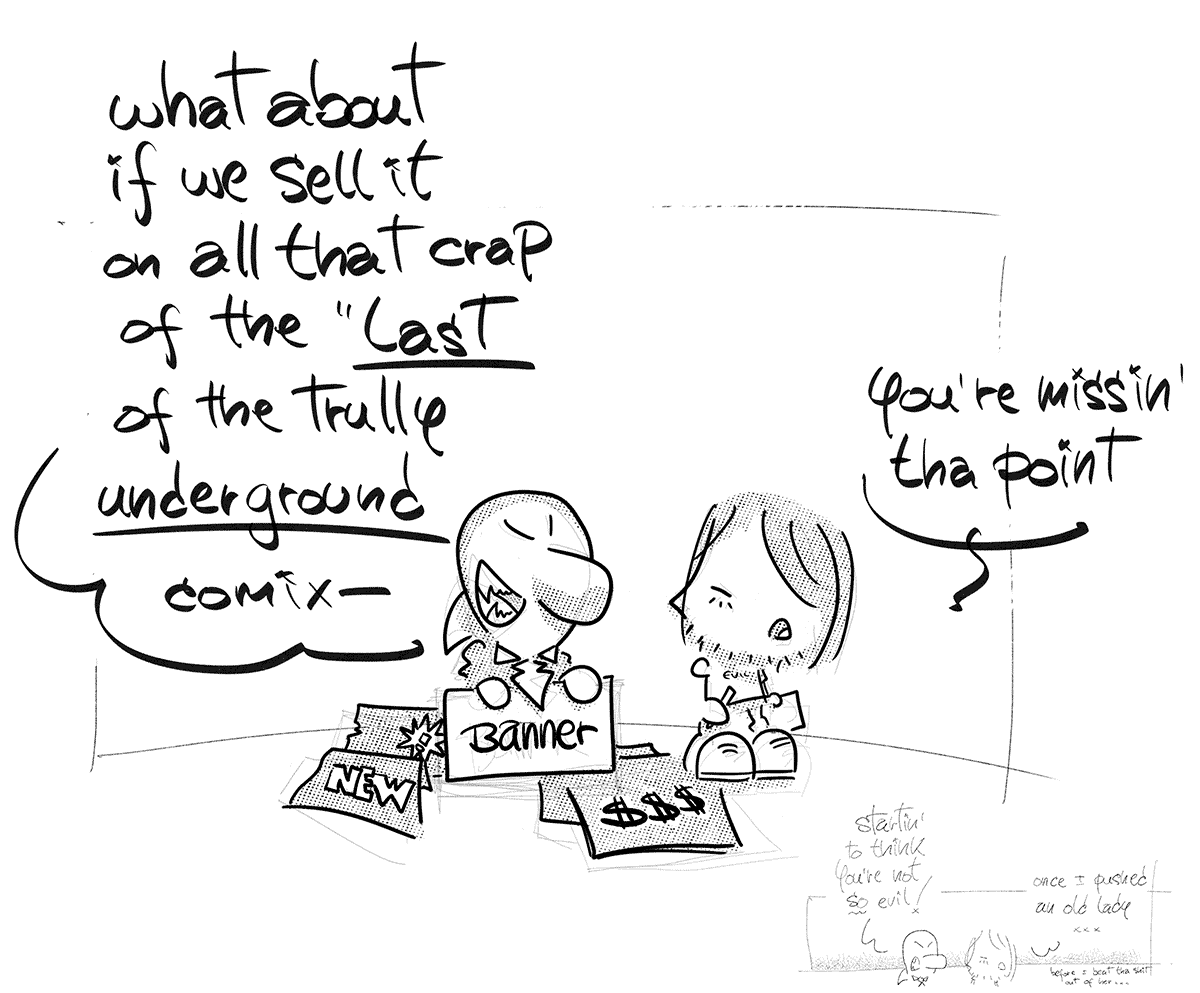 what about
if we sell it
on all that crap
of the "Last
of the trully
underground
comix—
you're missin'
tha point
EVIL
Banner
NEW
$$$
startin'
to think
you're not
so evil!
once I pushed
an old lady
...
before I beat tha shit
out of her...